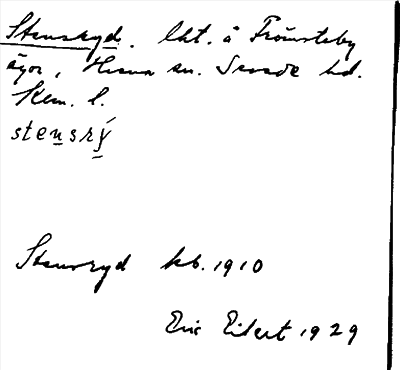 Stensryd. lht. å Främsteby
ägor, Hesna sn. Sevede hd.
Klm. l.
stensrý
Stensryd kb. 1910
Eric Eilert 1929